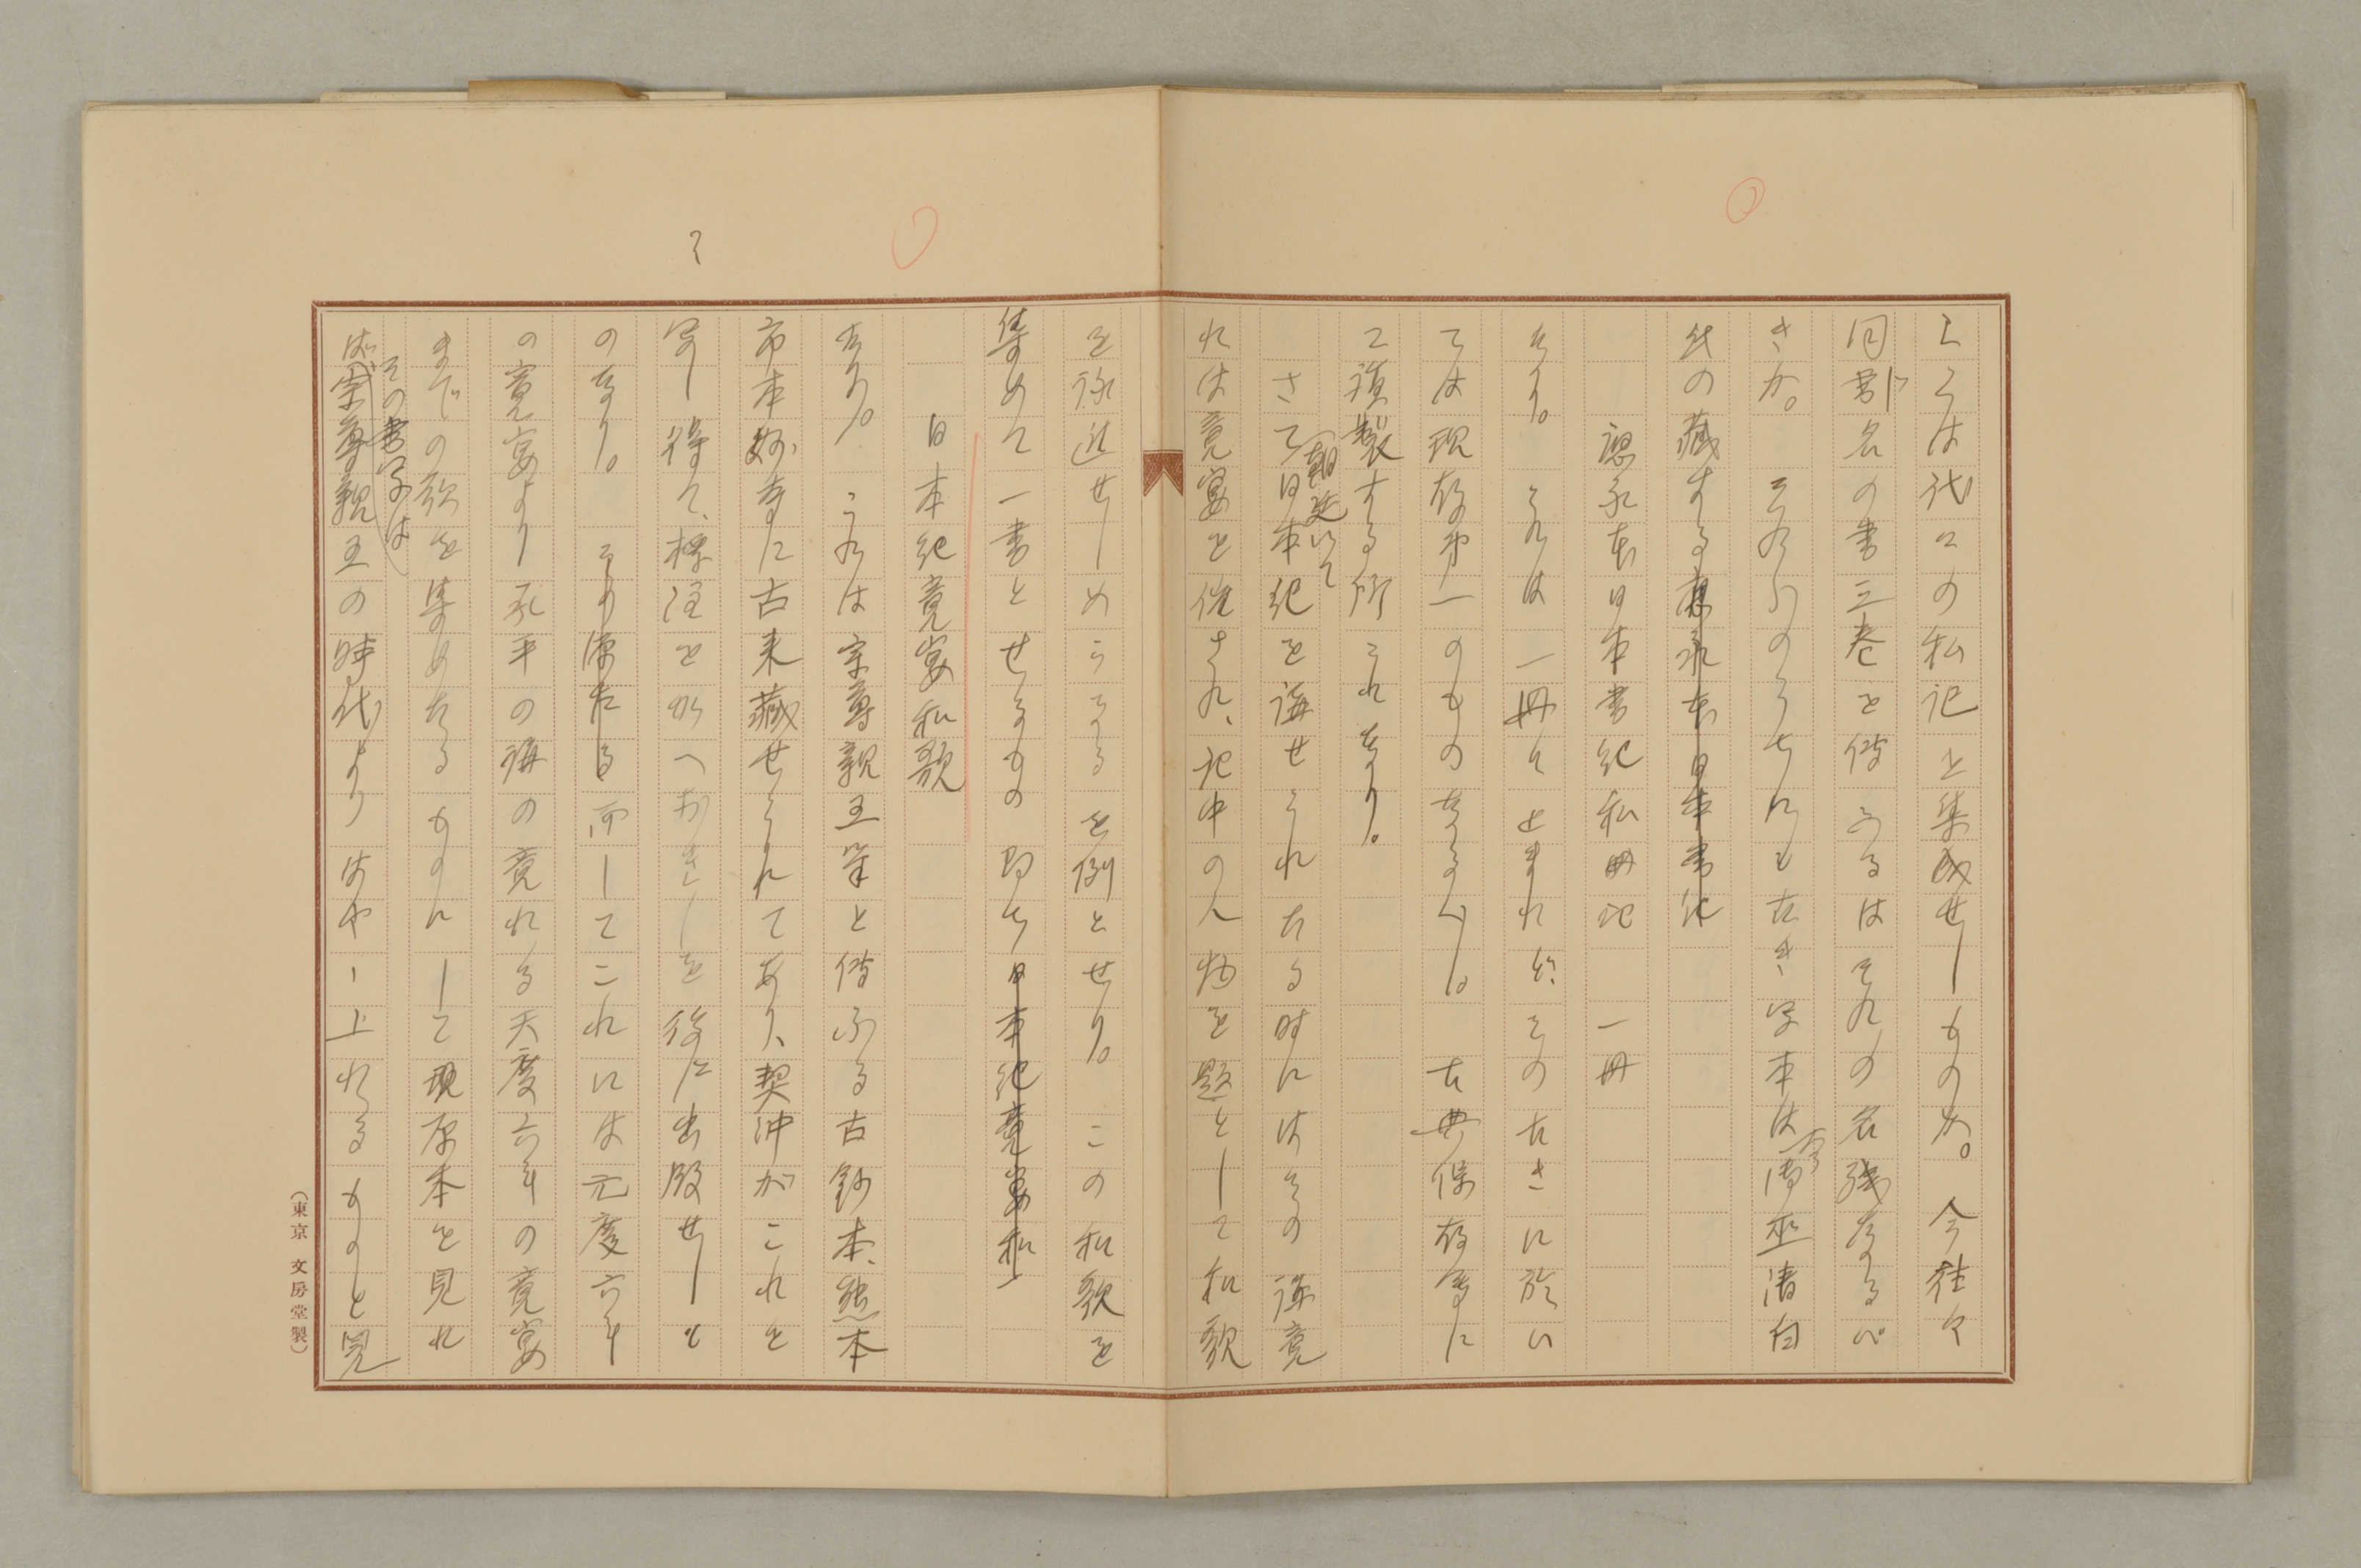 らくは代々の私記と集成せしものか。今往々
同じ書名の書三巻を伝ふるはそれの名残なるべ
きか。それらのうちにも古き写本は御巫清白
氏の藏する
應永本日本書紀私記　一冊
なり。これは一冊にとまれど、その古さに於い
ては現存第一のものなるべし。古典保存会に
て複製する所これなり。
さて朝廷にて日本紀を講せられたる時にはその講竟
れは竟宴を催され、記中の人物を題として和歌
を詠進せしめらるるを例とせり。この和歌を
集めて一書とせるもの即ち
日本紀竟宴和歌
なり。これは宗尊親王筆と伝ふる古鈔本、熊本
市本妙寺に古来藏せられてあり、契沖がこれを
写し得て、標注を加へおきしを後に出版せしも
のなり。而してこれには元慶六年
の竟宴より承平の講の竟れる天慶六年の竟宴
までの歌を集めたるものにして現存本を見れ
ば、その書写は宗尊親王の時代よりはやゝ上れるものと見
（東京 文房堂製）